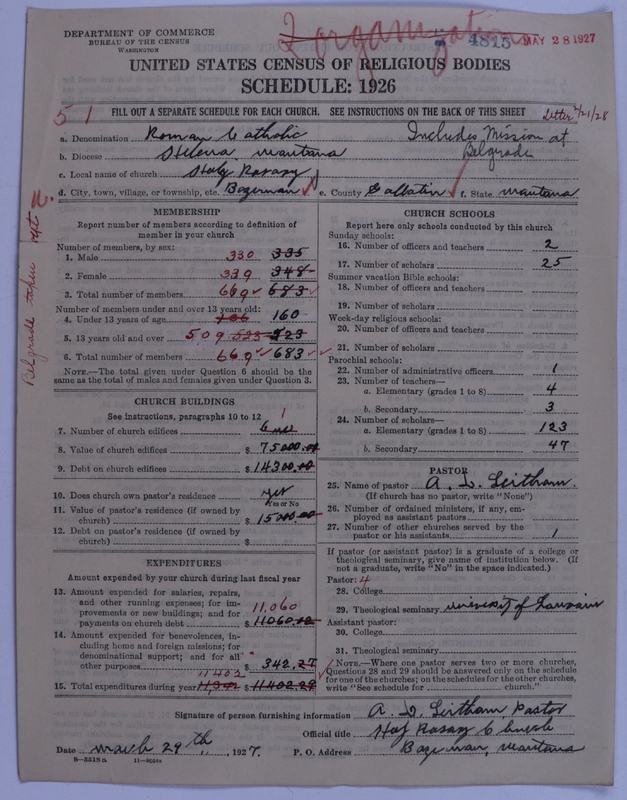 DEPARTMENT OF COMMERCE
BUREAU OF THE CENSUS
WASHINGTON
2 organizations
4815
MAY 28 1927
UNITED STATES CENSUS OF RELIGIOUS BODIES
SCHEDULE: 1926
51
Letter 2/21/28
FILL OUT A SEPARATE SCHEDULE FOR EACH CHURCH. SEE INSTRUCTIONS ON THE BACK OF THIS SHEET
a. Denomination Roman Catholic
Includes Mission at Belgrade
b. Diocese Helena Montana
c. Local name of church Holy Rosary
d. City, town, village, or township, etc. Bozeman e. County Gallatin f. State Montana
Belgrade taken out
MEMBERSHIP
Report number of members according to definition of
member in your church
Number of members, by sex:
1. Male 330 335
2. Female 339 348
3. Total number of members 669 683
Number of members under and over 13 years old:
4. Under 13 years of age 160
5. 13 years old and over 509 523 523
6. Total number of members 669 683
NOTE.—The total given under Question 6 should be the
same as the total of males and females given under Question 3.
CHURCH BUILDINGS
See instructions, paragraphs 10 to 12
1
7. Number of church edifices One
8. Value of church edifices $ 75000.00
9. Debt on church edifices $ 14300.00
10. Does church own pastor's residence yes
Yes or No
11. Value of pastor's residence (if owned by
church) $ 15000.00
12. Debt on pastor's residence (if owned by
church) $
EXPENDITURES
Amount expended by your church during last fiscal year
13. Amount expended for salaries, repairs,
and other running expenses; for im-
provements or new buildings; and for 11,060
payments on church debt $ 11060.02
14. Amount expended for benevolences, in-
cluding home and foreign missions; for
denominational support; and for all
other purposes $ 342.27
11402
15. Total expenditures during year $ 11402.29
CHURCH SCHOOLS
Report here only schools conducted by this church
Sunday schools:
16. Number of officers and teachers 2
17. Number of scholars 25
Summer vacation Bible schools:
18. Number of officers and teachers
19. Number of scholars
Week-day religious schools:
20. Number of officers and teachers
21. Number of scholars
Parochial schools:
22. Number of administrative officers 1
23. Number of teachers—
a. Elementary (grades 1 to 8) 4
b. Secondary 3
24. Number of scholars—
a. Elementary (grades 1 to 8) 123
b. Secondary 47
PASTOR
25. Name of pastor A. D. Leitham.
(If church has no pastor, write "None")
26. Number of ordained ministers, if any, em-
ployed as assistant pastors
27. Number of other churches served by the
pastor or his assistants 1
If pastor (or assistant pastor) is a graduate of a college or
theological seminary, give name of institution below. (If
not a graduate, write "No" in the space indicated.)
Pastor: 4
28. College
29. Theological seminary university of Louvain
Assistant pastor:
30. College
31. Theological seminary
NOTE.—Where one pastor serves two or more churches,
Questions 28 and 29 should be answered only on the schedule
for one of the churches; on the schedules for the other churches,
write "See schedule for church."
Signature of person furnishing information A. D. Leitham Pastor
Official title Holy Rosary Church
Date March 29th, 1927. P. O. Address Bozeman, Montana
8—5518a